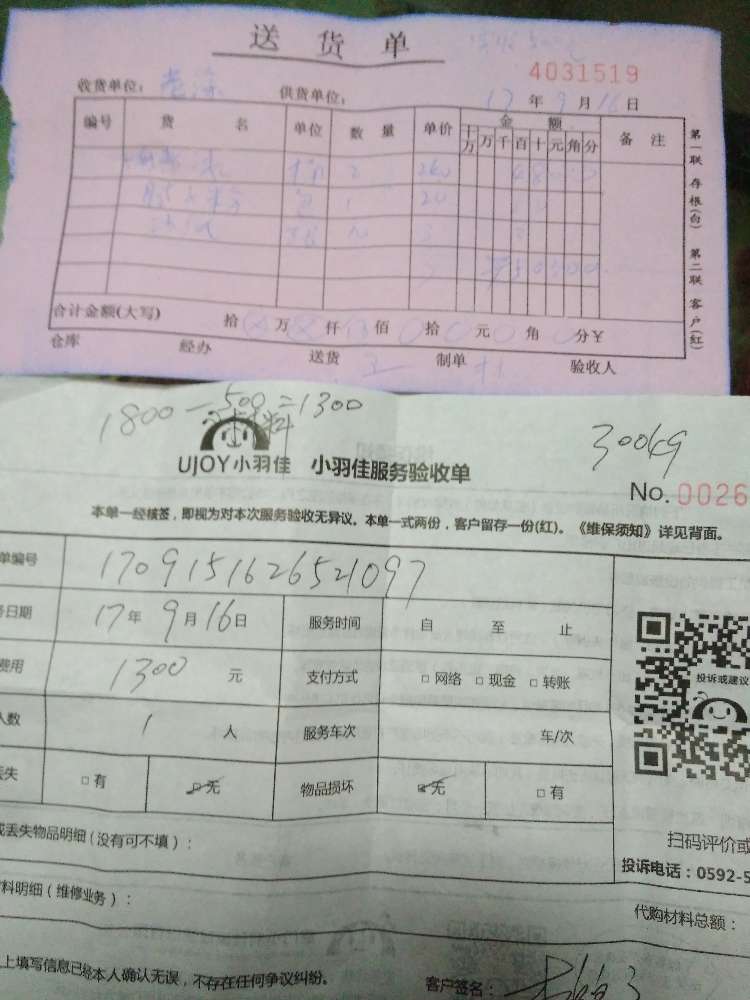 送货单
4031519
收货单位： 供货单位： 17年9月16日
编号 货名 单位 数量 单价 金额 备注
十万 万 千 百 十 元 角 分
2 260
包 1 20
合计金额(大写) 拾 万 仟 佰 拾 元 角 分¥
仓库 经办 送货 制单 验收人
第一联 存根(白)
第二联 客户(红)
1800-500=1300
30049
UJOY小羽佳 小羽佳服务验收单
No.0026
本单一经核签，即视为对本次服务验收无异议。本单一式两份，客户留存一份(红)。《维保须知》详见背面。
单编号 1709151626521097
日期 17年9月16日 服务时间 自 至 止
费用 1300 元 支付方式 □网络 □现金 □转账
人数 1 人 服务车次 车/次
丢失 □有 □无 物品损坏 □无 □有
投诉或建议
扫码评价或
投诉电话：0592-5
或丢失物品明细(没有可不填)：
料明细(维修业务)：
代购材料总额：
上填写信息已经本人确认无误，不存在任何争议纠纷。
客户签名：